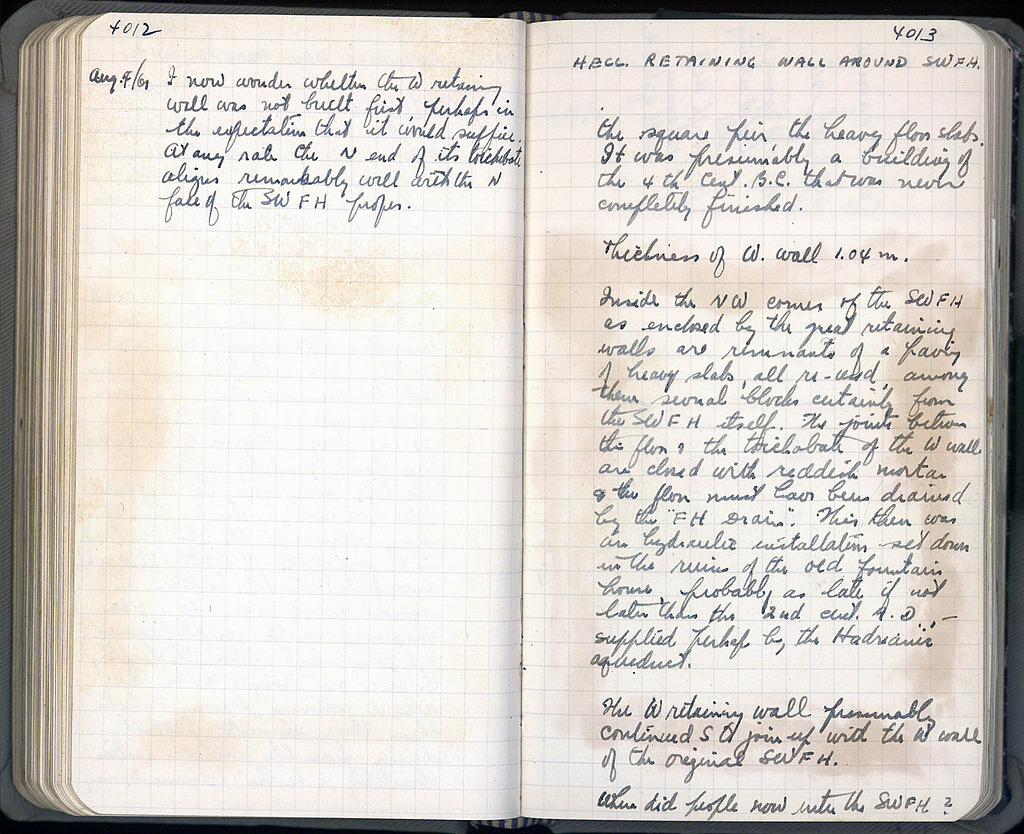 4012
Aug. 4/60 I now wonder whether the W retaining
wall was not built first, perhaps in
the expectation that it would suffice.
At any rate the N end of its toichobate
aligns remarkably well with the N
face of the SW FH proper.
4013
HELL. RETAINING WALL AROUND SWFH.
the square pier, the heavy floor slabs.
It was presumably a building of
the 4th cent. B.C. that was never
completely finished.
Thickness of W. wall 1.04 m.
Inside the NW corner of the SWFH
as enclosed by the great retaining
walls are remnants of a paving
of heavy slabs, all re-used, among
them several blocks certainly from
the SWFH itself. The joints between
this floor & the toichobate of the W wall
are closed with reddish mortar
& the floor must have been drained
by the "FH Drain". This then was
an hydraulic installation set down
in the ruins of the old fountain
house, probably as late if not
later than the 2nd cent. A.D., –
supplied perhaps by the Hadrianic
aqueduct.
The W retaining wall presumably
continued S to join up with the W wall
of the original SWFH.
Where did people now enter the SWFH?